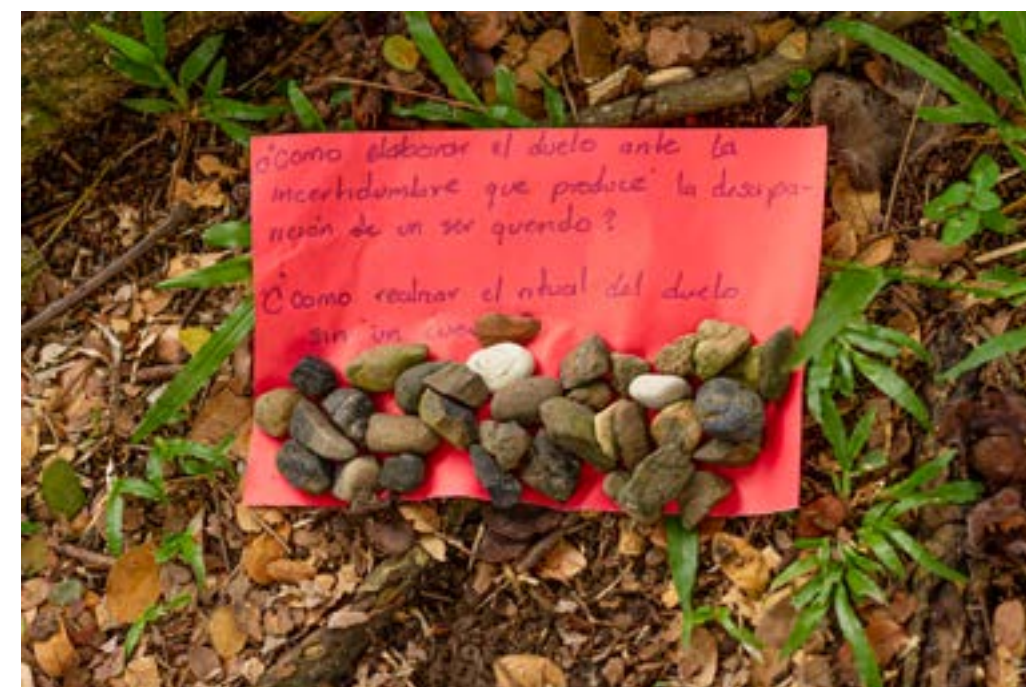 ¿Como elaborar el duelo ante la
incertidumbre que produce la desapa-
rición de un ser querido?
¿Como realizar el ritual del duelo
sin un